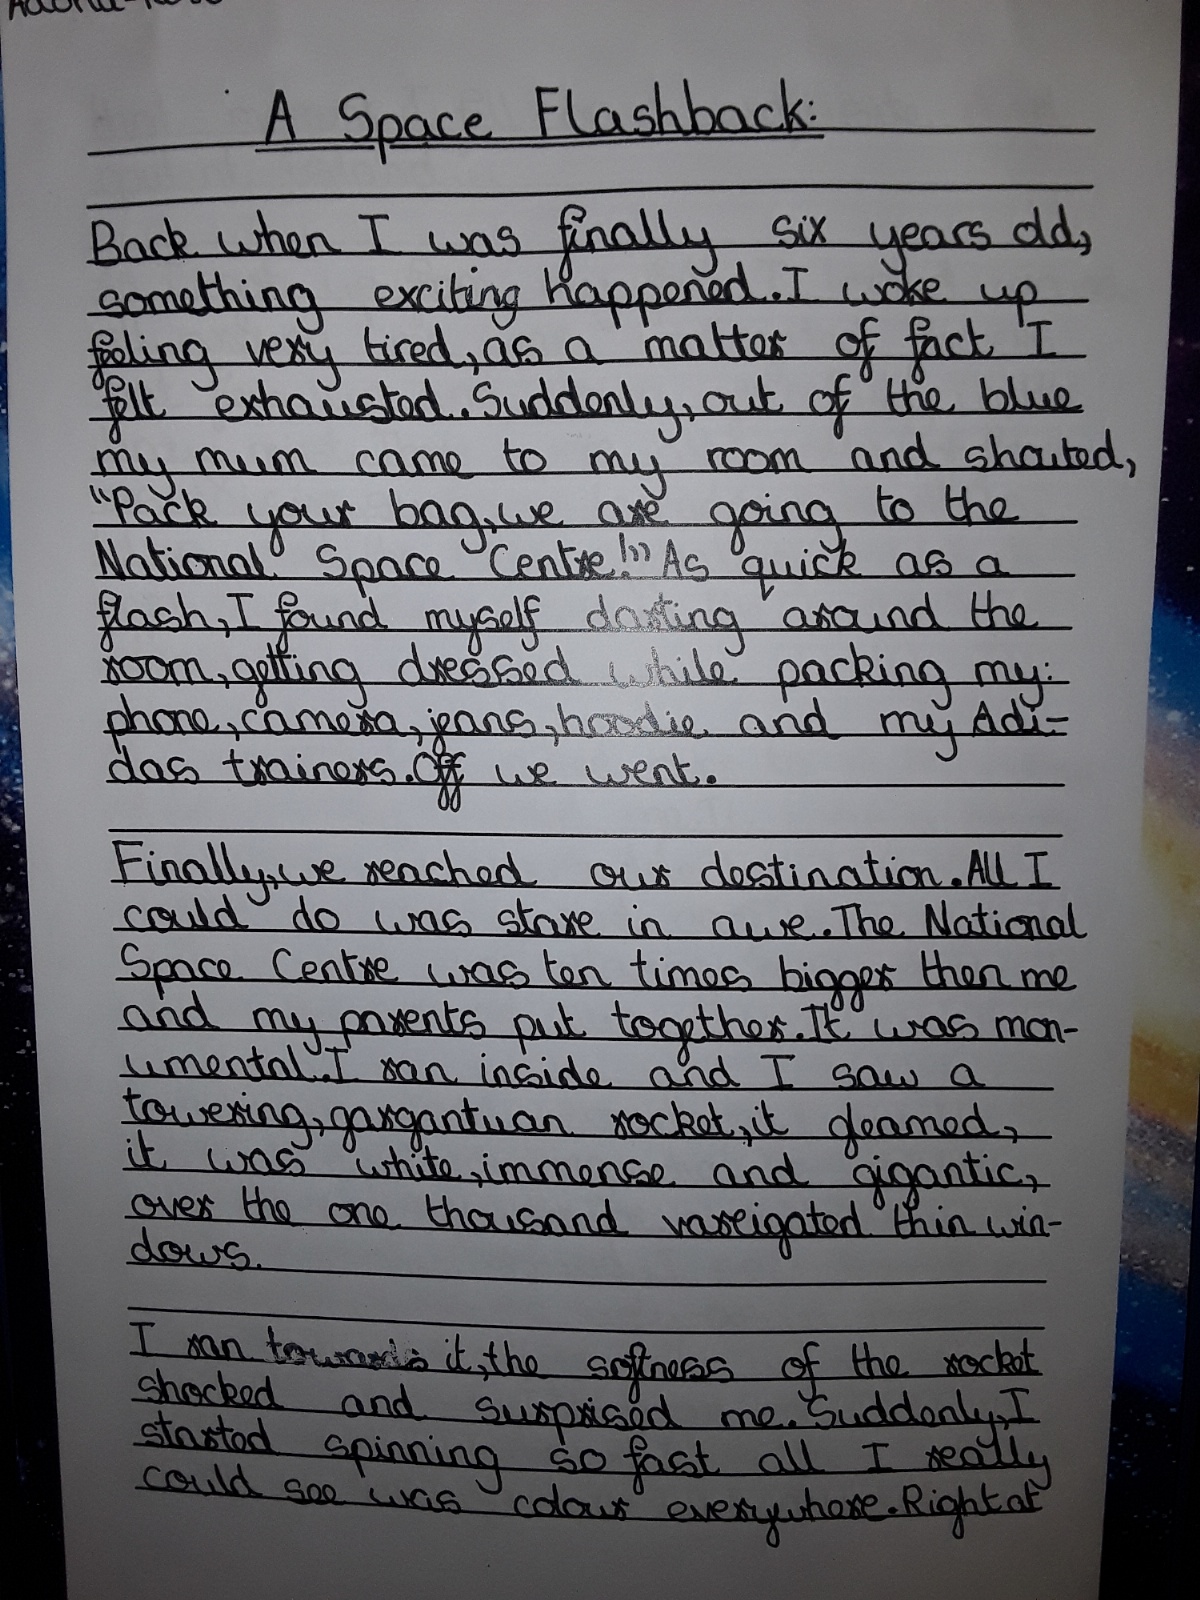 A Space Flashback:
Back when I was finally six years old,
something exciting happened. I woke up
feeling very tired, as a matter of fact I
felt exhausted. Suddenly, out of the blue
my mum came to my room and shouted,
"Pack your bag, we are going to the
National Space Centre!" As quick as a
flash, I found myself darting around the
room, getting dressed while packing my:
phone, camera, jeans, hoodie and my Adi-
das trainers. Off we went.
Finally, we reached our destination. All I
could do was stare in awe. The National
Space Centre was ten times bigger then me
and my parents put together. It was mon-
umental. I ran inside and I saw a
towering, gargantuan rocket, it gleamed,
it was white, immense and gigantic,
over the one thousand vareigated thin win-
dows.
I ran towards it, the softness of the rocket
shocked and surprised me. Suddenly, I
started spinning so fast all I really
could see was colour everywhere. Right at